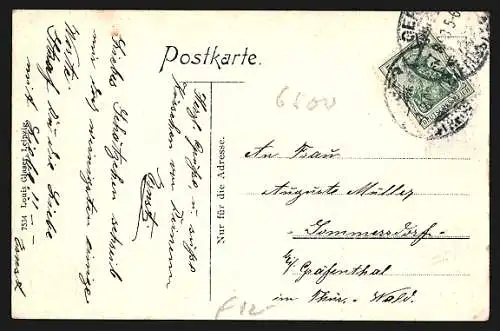 Postkarte.
6500
Liebes Schätzchen schreib
mir das wenigstens einige
Worte.
Straf Du die Liebe
mit
Ernst
Herzl. Grüße u. süße
Küsschen von Deinem
Ernst.
Nur für die Adresse.
7534 Louis Glaser, Leipzig.
An Frau
Auguste Müller
Sommersdorf
b/ Gräfenthal
im Thür. Wald.
F12-